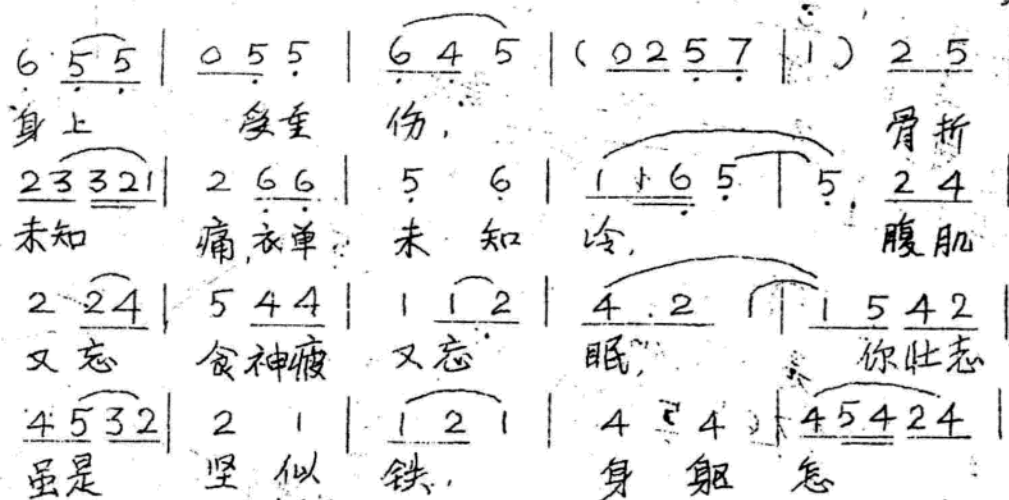 6 5 5 | 0 5 5 | 6 4 5 | ( 0 2 5 7 | 1 ) 2 5
身上 受重 伤, 骨折
2 3 3 2 1 | 2 6 6 | 5 6 | 1 1 6 5 | 5 2 4
未知 痛,衣单 未知 冷, 腹肌
2 2 4 | 5 4 4 | 1 1 2 | 4 . 2 1 | 1 5 4 2 |
又忘 食神疲 又忘 眠, 你壮志
4 5 3 2 | 2 1 | 1 2 1 | 4 4 | 4 5 4 2 4 |
虽是 坚似 铁, 身躯 怎